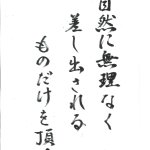 自然に無理なく
差し出される
ものだけを頂